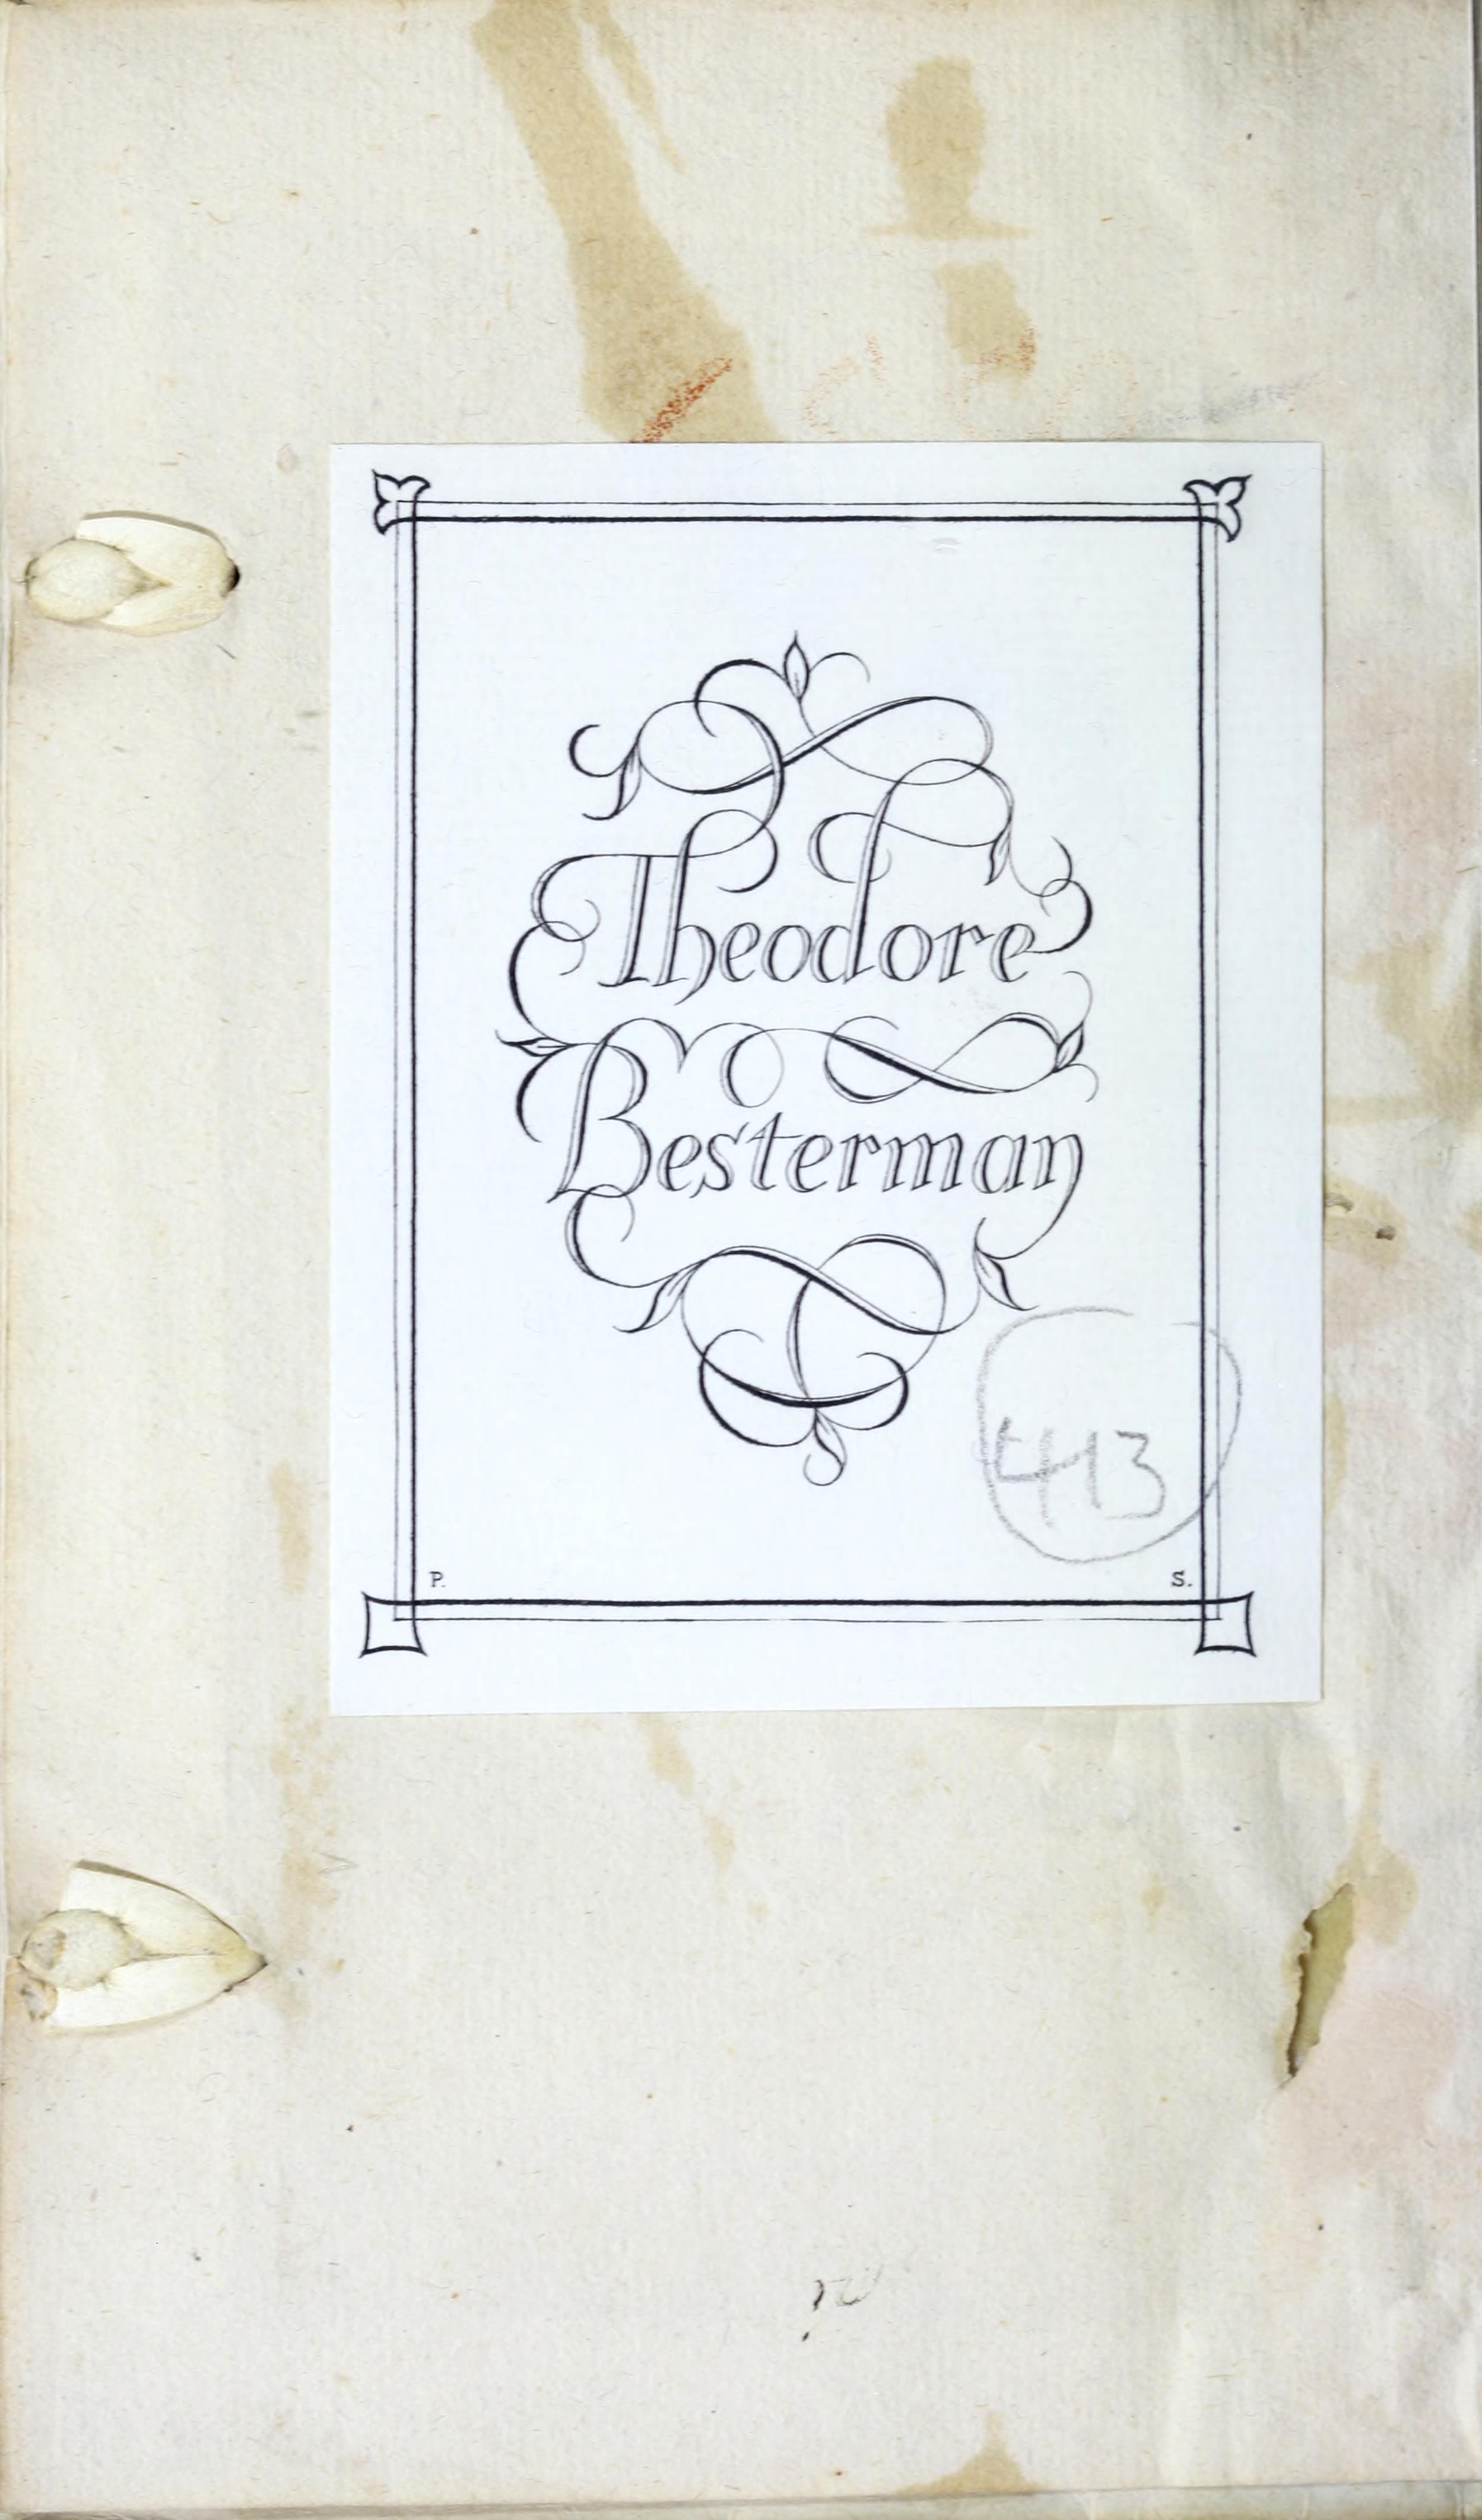 Theodore
Besterman
413
P. S.